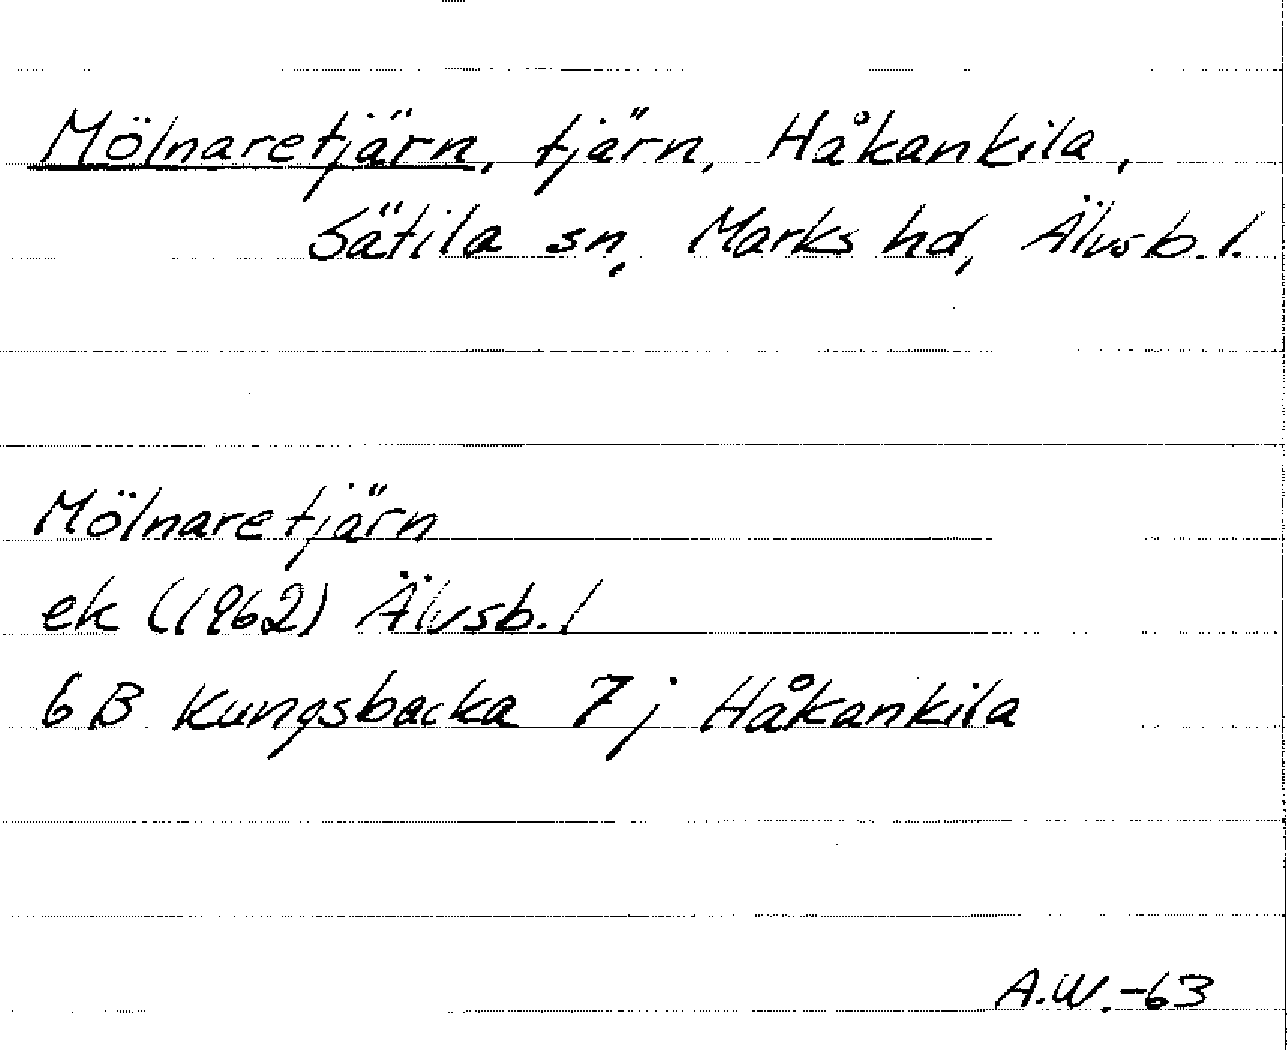 Mölnaretjärn, tjärn, Håkankila,
Sätila sn, Marks hd, Älvsb. l.
Mölnaretjärn
ek (1962) Älvsb. l
6 B Kungsbacka 7 j Håkankila
A.W.-63